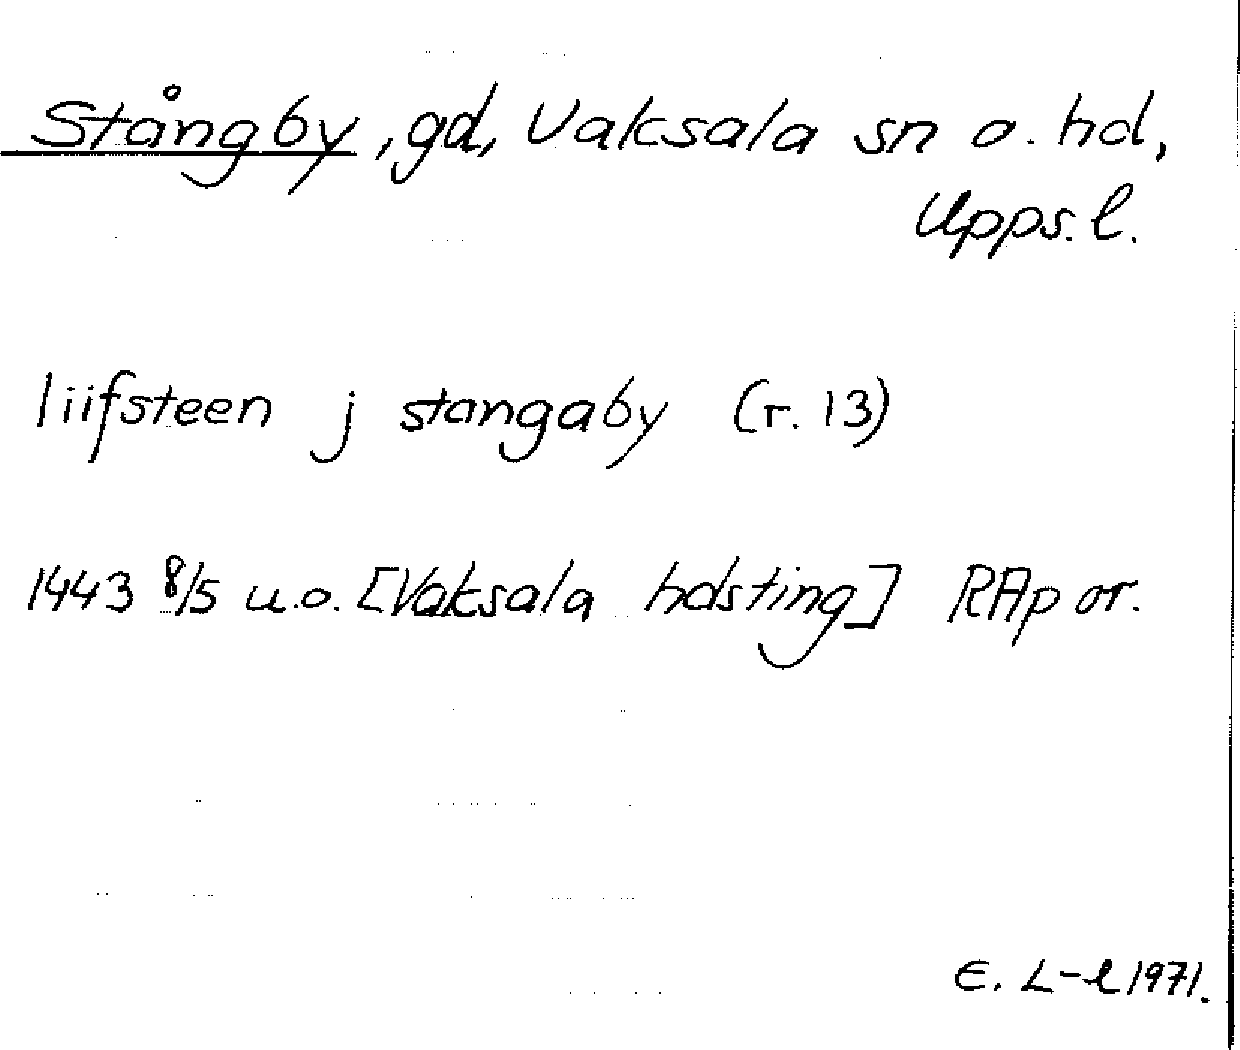 Stångby, gd, Vaksala sn o. hd,
Upps. l.
liifsteen j stangaby (r. 13)
1443 8/5 u.o. [Vaksala hdsting] RAp or.
E. L-l 1971.